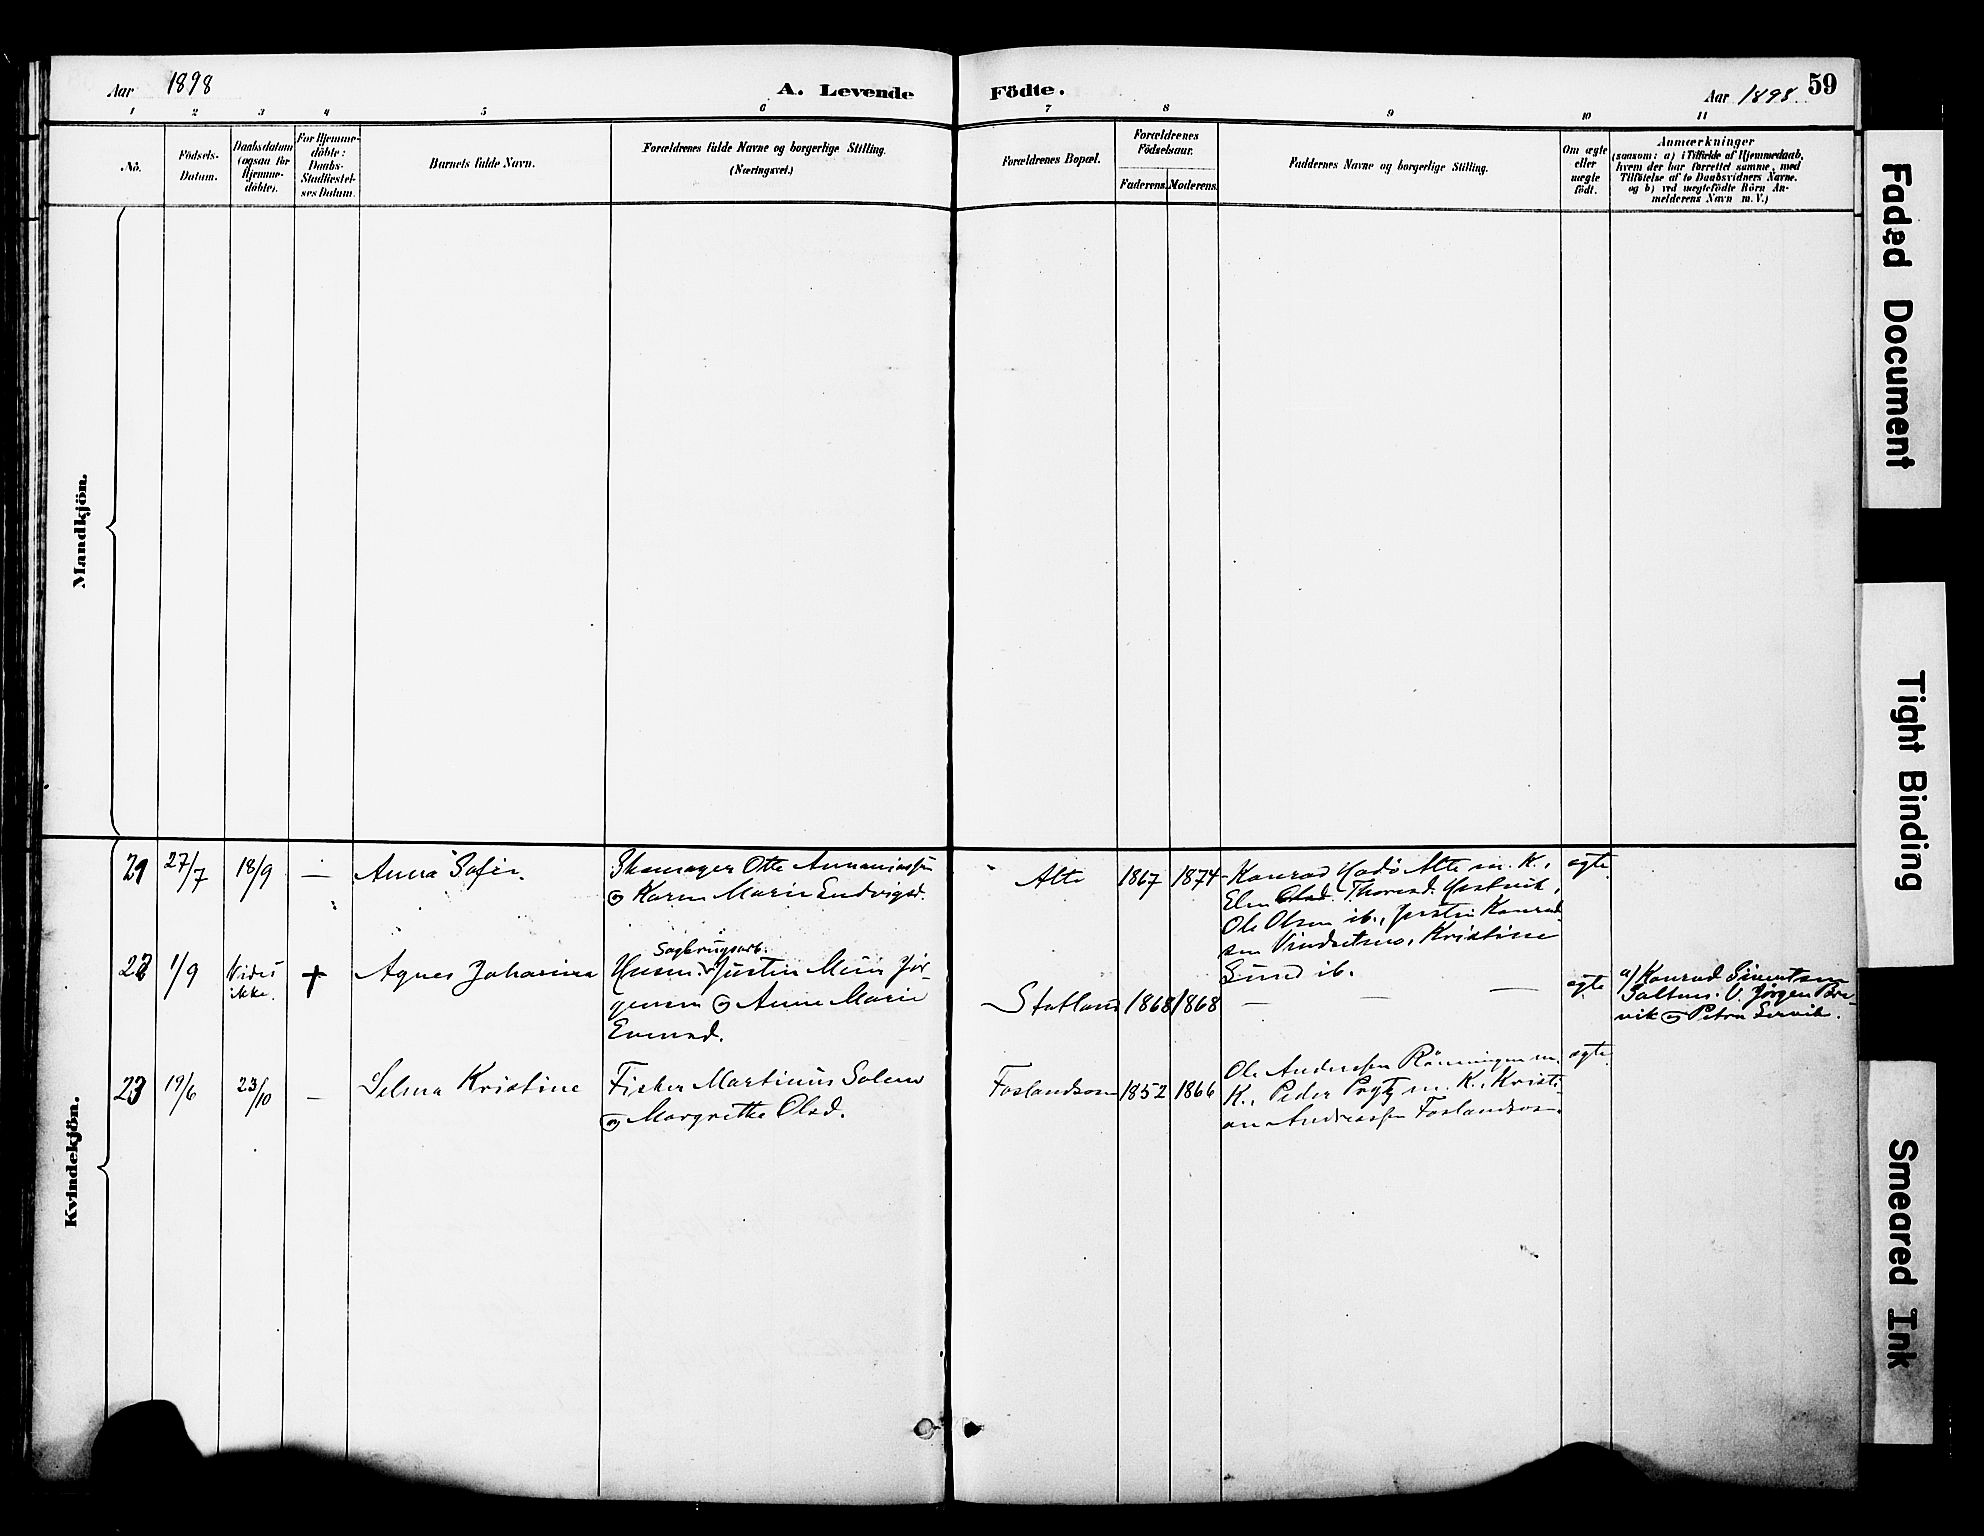 Aar 1898
A. Levende
Födte.
Aar 1898.
59
1 2 3 4 5 6 7 8 9 10 11
No.
Födsels-
Datum.
Daabsdatum
(ogsaa for
Hjemme-
döbte).
For Hjemme-
döbte:
Daabs-
Stadfæstel-
ses Datum.
Barnets fulde Navn.
Forældrenes fulde Navne og borgerlige Stilling.
(Næringsvei.)
Forældrenes Bopæl.
Forældrenes
Födselsaar.
Faderens.
Moderens.
Faddernes Navne og borgerlige Stilling.
Om ægte
eller
uægte
födt.
Anmærkninger
(saasom: a) i Tilfælde af Hjemmedaab,
hvem der har forrettet samme, med
Tilföielse af to Daabsvidners Navne.
og b) ved uægtefödte Börn An-
melderens Navn m. V.)
Mandkjön.
Kvindekjön.
21 27/7 18/9 — Anna Sofie.
Otto Ananiassen
og Karen Marie Ludvigsd.
Alte 1867 1874
Konrad Hadö Alte m. K.,
Elen Thoresd.
Ole Olsen ib., Justin Konrad
sen Vindsetmo, Kristine
Sund ib.
ægte
22 1/9 Vides
ikke. + Agnes Johanna
Sagbrugsarb.
Husm. Justin Jör-
gensen og Anne Marie
Evensd.
Statland 1868 1868 — — —
ægte
a) Konrad Sivertsen
Saltnes. V. Jörgen Bre-
vik og Petra
23 19/6 23/10 — Selma Kristine
Fisker Martinus Solem
og Margrethe Olsd.
Foslandsosen 1852 1866
Ole Andersen Rönningen m.
K., Peder Prytz m. K., Kristi-
an Andreassen Foslandsosen.
ægte
Faded Document
Tight Binding
Smeared Ink